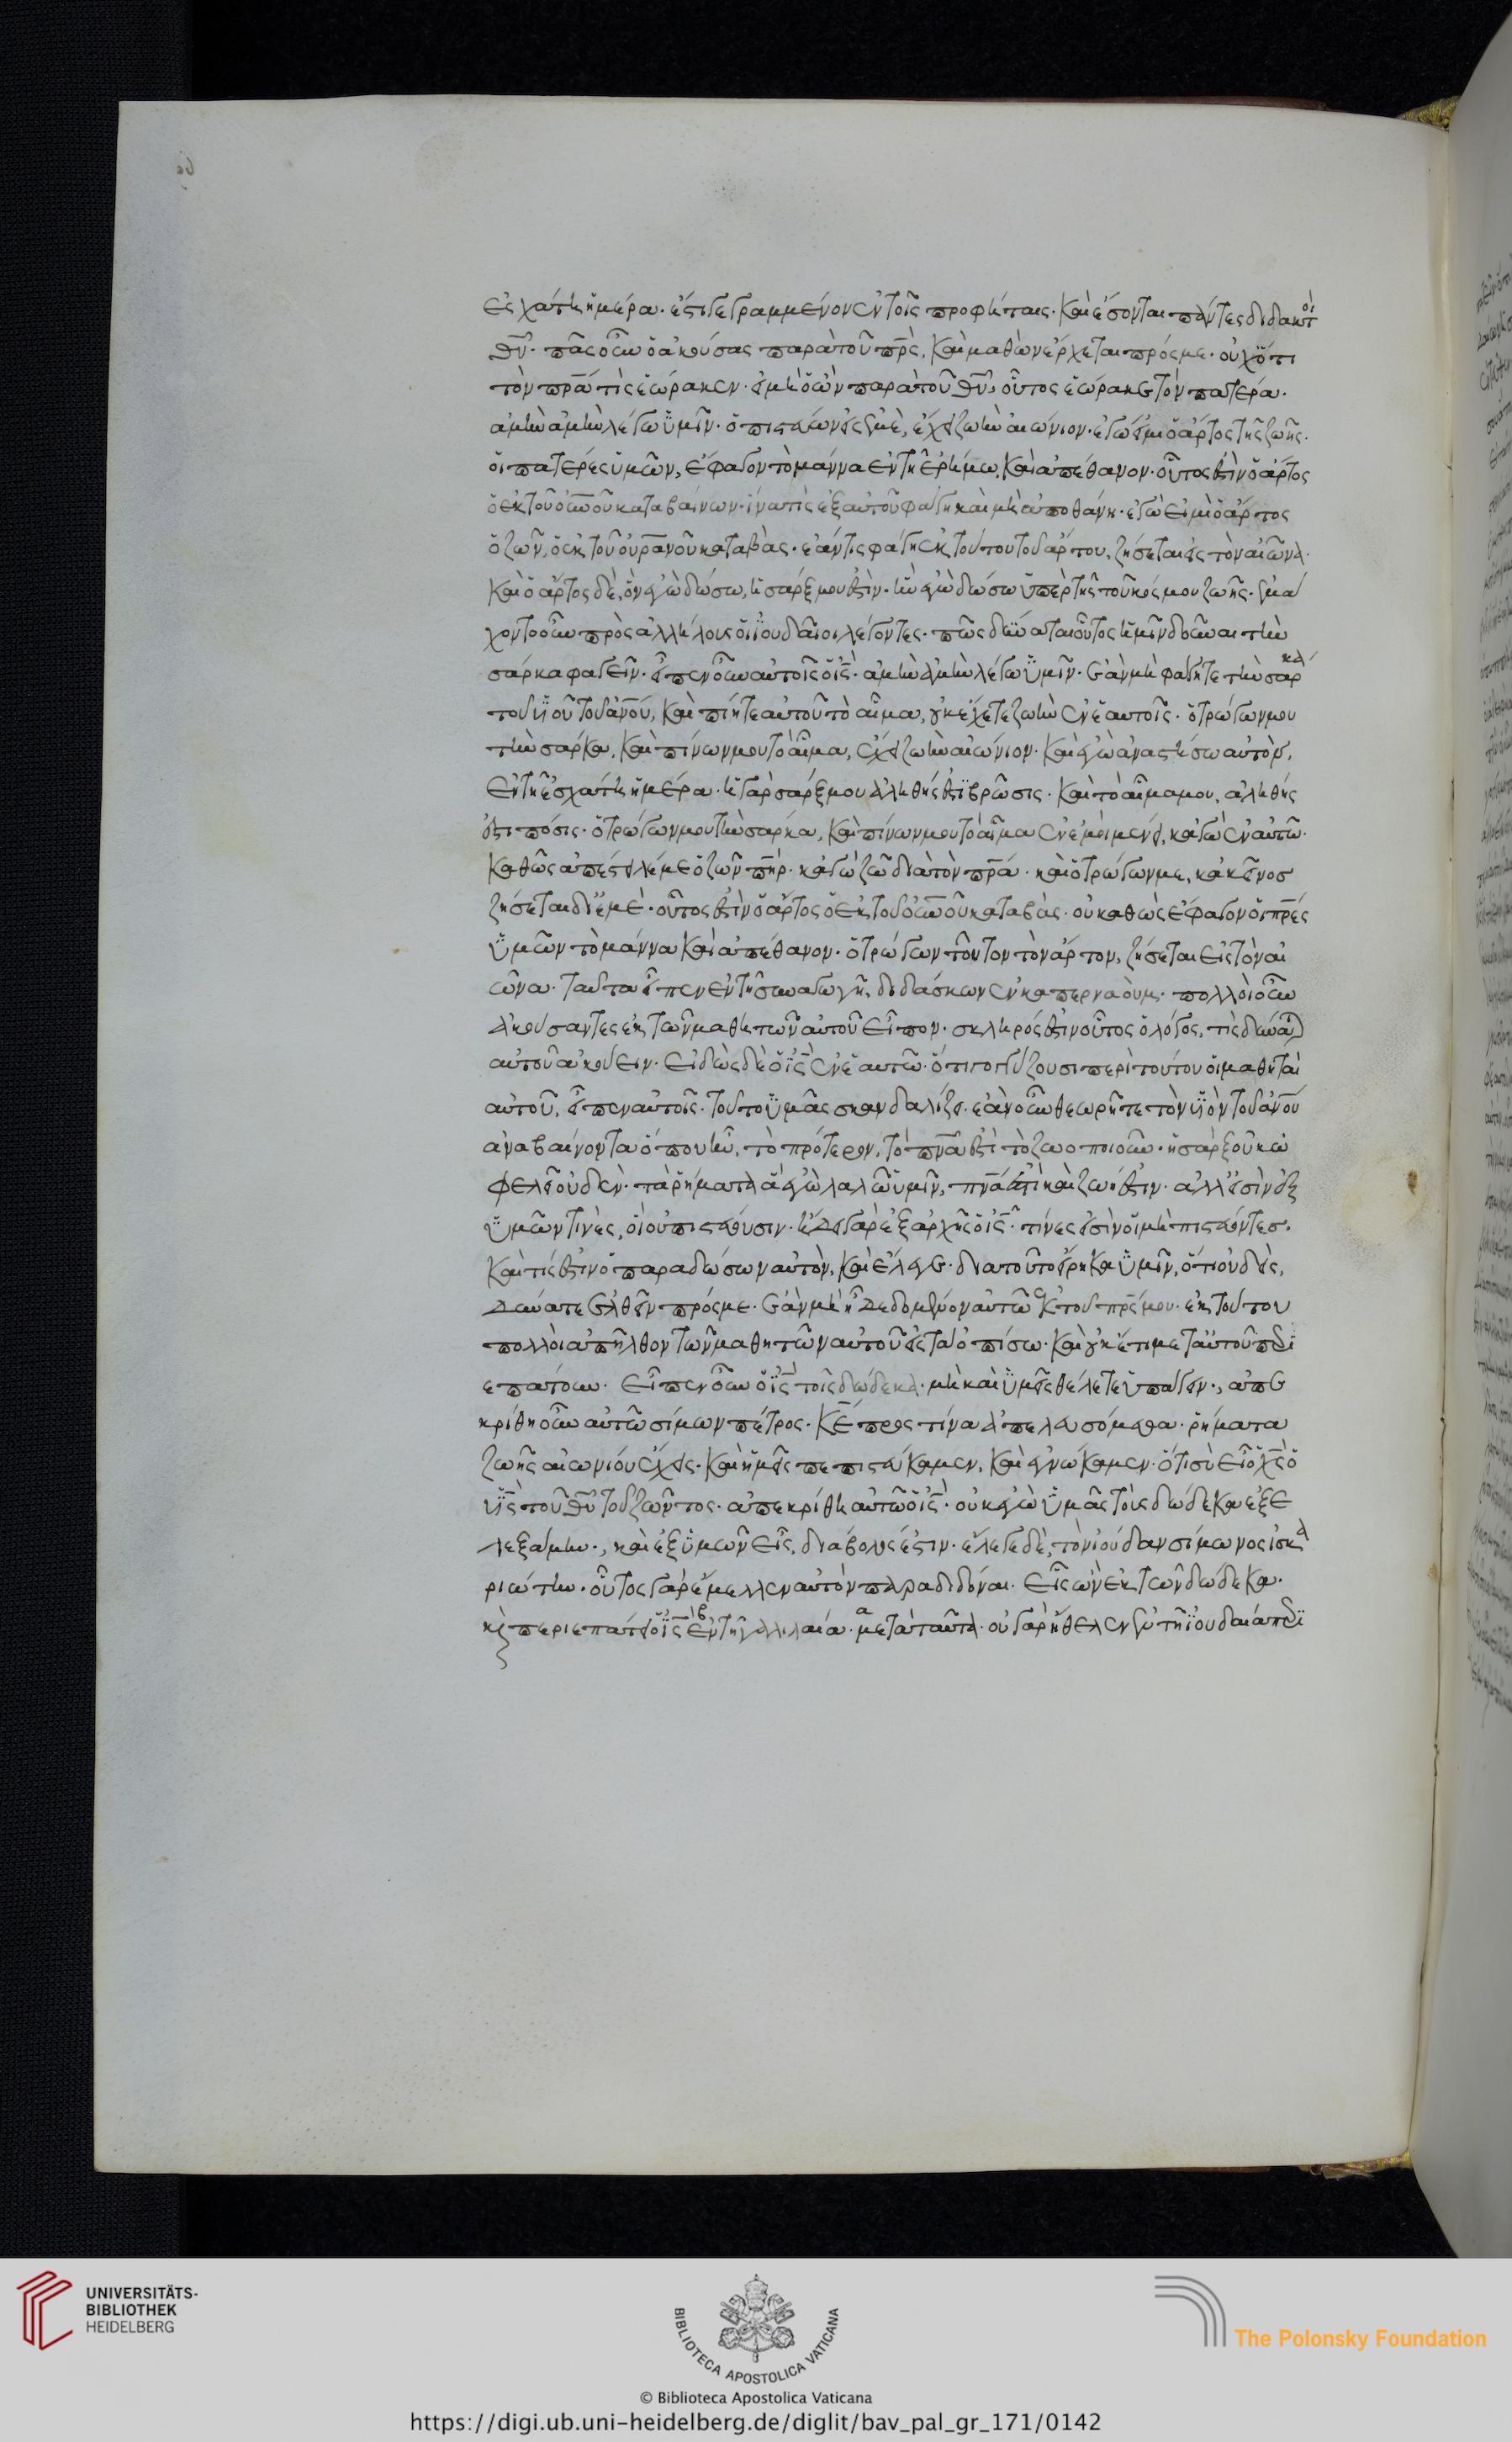 ἐσχάτη ἡμέρα. ἔστι γεγραμμένον ἐν τοῖς προφήταις. καὶ ἔσονται πάντες διδακτοὶ
θῦ. πᾶς οὖν ὁ ἀκούσας παρὰ τοῦ πρς, καὶ μαθὼν ἔρχεται πρός με. οὐχ ὅτι
τὸν πρα τὶς ἑώρακεν. εἰ μὴ ὁ ὢν παρὰ τοῦ θῦ, οὗτος ἑώρακε τὸν πατέρα.
ἀμὴν ἀμὴν λέγω ὑμῖν. ὁ πιστεύων εἰς ἐμὲ, ἔχει ζωὴν αἰώνιον. ἐγώ εἰμι ὁ ἄρτος τῆς ζωῆς.
οἱ πατέρες ὑμῶν, ἔφαγον τὸ μάννα ἐν τῇ ἐρήμω, καὶ ἀπέθανον. οὗτος ἐστὶν ὁ ἄρτος
ὁ ἐκ τοῦ οὐνοῦ καταβαίνων. ἵνα τὶς ἐξ αὐτοῦ φάγη καὶ μὴ ἀποθάνη. ἐγὼ εἰμὶ ὁ ἄρτος
ὁ ζῶν, ὁ ἐκ τοῦ οὐρανοῦ καταβὰς. ἐάν τις φάγη ἐκ τούτου τοῦ ἄρτου, ζήσεται εἰς τὸν αἰῶνα.
καὶ ὁ ἄρτος δὲ, ὃν ἐγὼ δώσω, ἡ σάρξ μου ἐστὶν. ἣν ἐγὼ δώσω ὑπὲρ τῆς τοῦ κόσμου ζωῆς. ἐμά
χοντο οὖν πρὸς ἀλλήλους οἱ ἰουδαῖοι λέγοντες. πῶς δύναται οὗτος ἡμῖν δοῦναι τὴν
σάρκα φαγεῖν. εἶπεν οὖν αὐτοῖς ὁ ις. ἀμὴν ἀμὴν λέγω ὑμῖν. ἐὰν μὴ φάγητε τὴν σάρκα
τοῦ υἱοῦ τοῦ ἀνοῦ, καὶ πίητε αὐτοῦ τὸ αἷμα, οὐκ ἔχετε ζωὴν ἐν ἑαυτοῖς. ὁ τρώγων μου
τὴν σάρκα, καὶ πίνων μου τὸ αἷμα, ἔχει ζωὴν αἰώνιον. καὶ ἐγὼ ἀναστήσω αὐτὸν,
ἐν τῇ ἐσχάτη ἡμέρα. ἡ γὰρ σάρξ μου ἀληθής ἐστι βρῶσις. καὶ τὸ αἷμα μου, ἀληθής
ἐστι πόσις. ὁ τρώγων μου τὴν σάρκα, καὶ πίνων μου τὸ αἷμα ἐν ἐμοὶ μένει, καγὼ ἐν αὐτῶ.
καθὼς ἀπέστειλέ με ὁ ζῶν πηρ. καγὼ ζῶ διὰ τὸν πρα. καὶ ὁ τρώγων με, κακεῖνος
ζήσεται δι' ἐμὲ. οὗτος ἐστὶν ὁ ἄρτος ὁ ἐκ τοῦ οὐνοῦ καταβὰς. οὐ καθὼς ἔφαγον οἱ πρες
ὑμῶν τὸ μάννα καὶ ἀπέθανον. ὁ τρώγων τοῦτον τὸν ἄρτον, ζήσεται εἰς τὸν αἰ
ῶνα. ταῦτα εἶπεν ἐν τῇ συναγωγῇ, διδάσκων ἐν καπερναοὺμ. πολλοὶ οὖν
ἀκούσαντες ἐκ τῶν μαθητῶν αὐτοῦ εἶπον. σκληρός ἐστιν οὗτος ὁ λόγος, τὶς δύναται
αὐτοῦ ἀκούειν. εἰδὼς δὲ ὁ ις ἐν ἑαυτῶ. ὅτι γογγύζουσι περὶ τούτου οἱ μαθηταὶ
αὐτοῦ, εἶπεν αὐτοῖς. τοῦτο ὑμᾶς σκανδαλίζει. ἐὰν οὖν θεωρῆτε τὸν υἱὸν τοῦ ἀνοῦ
ἀναβαίνοντα ὅπου ἦν, τὸ πρότερον, τὸ πνα ἐστὶ τὸ ζωοποιοῦν. ἡ σὰρξ οὐκ ὠ
φελεῖ οὐδὲν. τὰ ῥήματα ἃ ἐγὼ λαλῶ ὑμῖν, πνα ἐστὶ καὶ ζωή ἐστιν. ἀλλ' εἰσὶν ἐξ
ὑμῶν τινὲς, οἳ οὐ πιστεύουσιν. ἤδει γὰρ ἐξ ἀρχῆς ὁ ις. τίνες εἰσὶν οἱ μὴ πιστεύοντες.
καὶ τίς ἐστιν ὁ παραδώσων αὐτὸν, καὶ ἔλεγε. διατοῦτο εἴρηκα ὑμῖν, ὅτι οὐδεὶς,
δύναται ἐλθεῖν πρός με. ἐὰν μὴ ἦ δεδομένον αὐτῶ ἐκ τοῦ πρς μου. ἐκ τούτου
πολλοὶ ἀπῆλθον τῶν μαθητῶν αὐτοῦ εἰς τὰ ὀπίσω. καὶ οὐκέτι μετ' αὐτοῦ περι
επάτουν. εἶπεν οὖν ὁ ις τοῖς δώδεκα. μὴ καὶ ὑμεῖς θέλετε ὑπάγειν., ἀπε
κρίθη οὖν αὐτῶ σίμων πέτρος. κε πρὸς τίνα ἀπελευσόμεθα. ῥήματα
ζωῆς αἰωνίου ἔχεις. καὶ ἡμεῖς πεπιστεύκαμεν, καὶ ἐγνώκαμεν. ὅτι σὺ εἶ ὁ χς ὁ
υἱς τοῦ θῦ τοῦ ζῶντος. ἀπεκρίθη αὐτῶ ὁ ις. οὐκ ἐγὼ ὑμᾶς τοὺς δώδεκα ἐξε
λεξάμην., καὶ ἐξ ὑμῶν εἷς, διάβολος ἐστιν. ἔλεγε δὲ, τὸν ἰούδαν σίμωνος ἰσκα
ριώτην. οὗτος γὰρ ἔμελλεν αὐτὸν παραδιδόναι. εἷς ὢν ἐκ τῶν δώδεκα.
κὶ περιεπάτει ὁ ις ἐν τῇ γαλιλαία. μετὰ ταῦτα. οὐ γὰρ ἤθελεν ἐν τῇ ἰουδαία περι
UNIVERSITÄTS-
BIBLIOTHEK
HEIDELBERG
BIBLIOTECA APOSTOLICA VATICANA
The Polonsky Foundation
© Biblioteca Apostolica Vaticana
https://digi.ub.uni-heidelberg.de/diglit/bav_pal_gr_171/0142